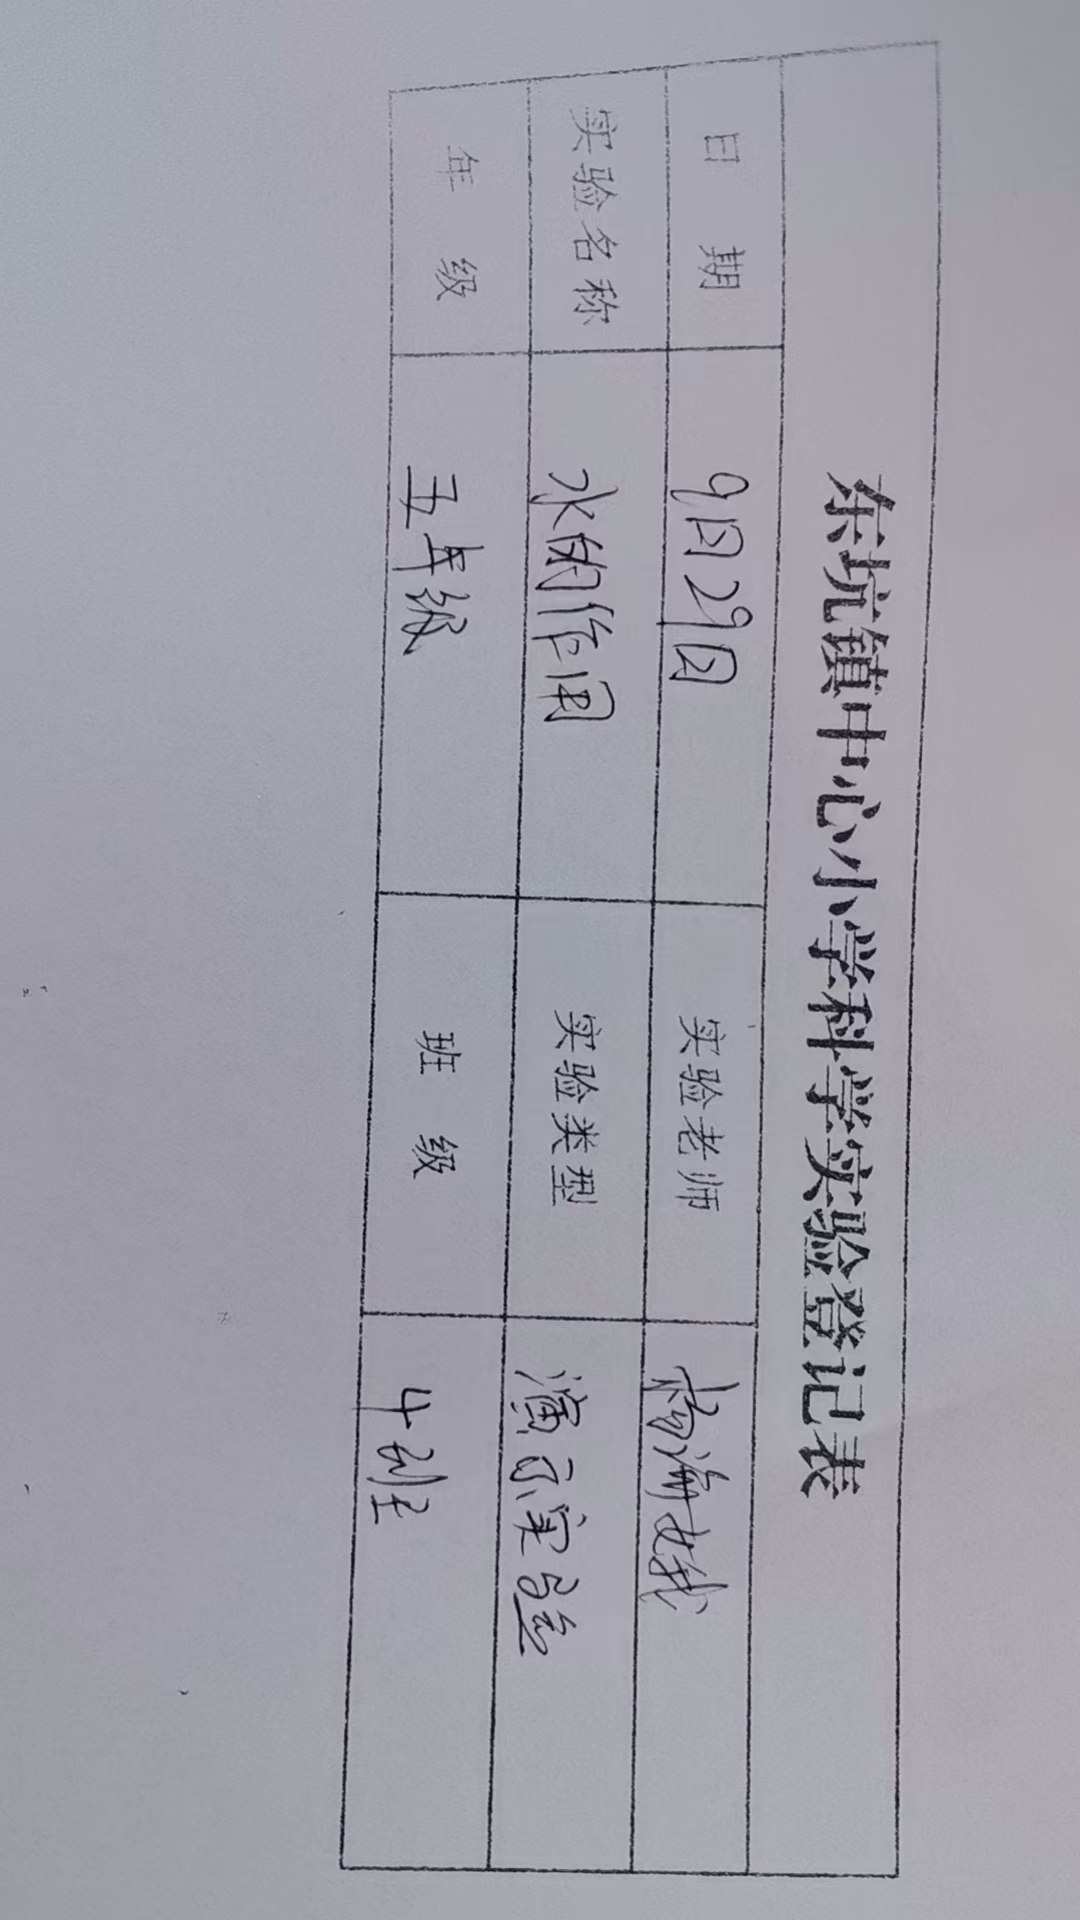 东坑镇中心小学科学实验登记表
日期 9月29日 实验老师 杨海娥
实验名称 水的作用 实验类型 演示实验
年级 五年级 班级 4班